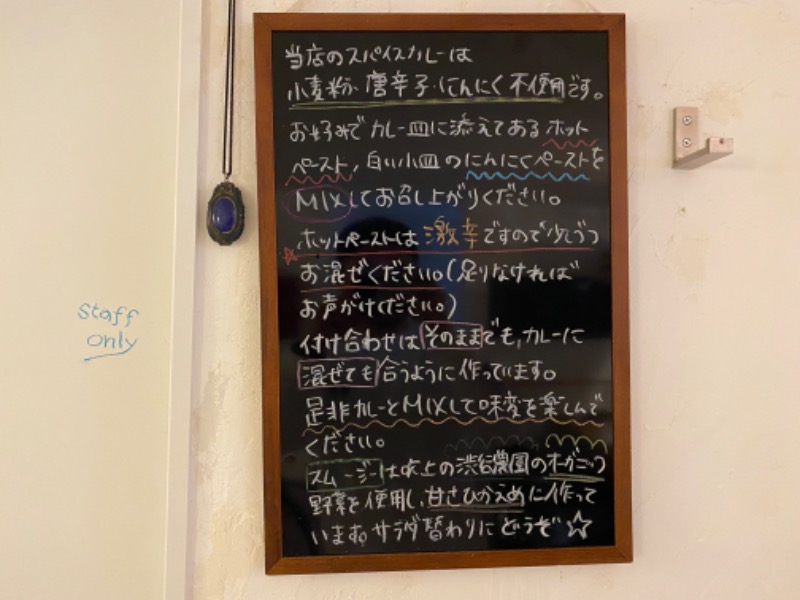 当店のスパイスカレーは
小麦粉・唐辛子・にんにく不使用です。
お好みでカレー皿に添えてあるホット
ペースト，白い小皿のにんにくペーストを
MIXしてお召し上がりください。
☆ホットペーストは激辛ですので少しづつ
お混ぜください。(足りなければ
お声がけください。)
付け合わせはそのままでも，カレーに
混ぜても合うように作っています。
是非カレーとMIXして味変を楽しんで
ください。
スムージーは吹上の渋谷農園のオーガニック
野菜を使用し、甘さひかえめに作って
います。サラダ替わりにどうぞ☆
Staff
only